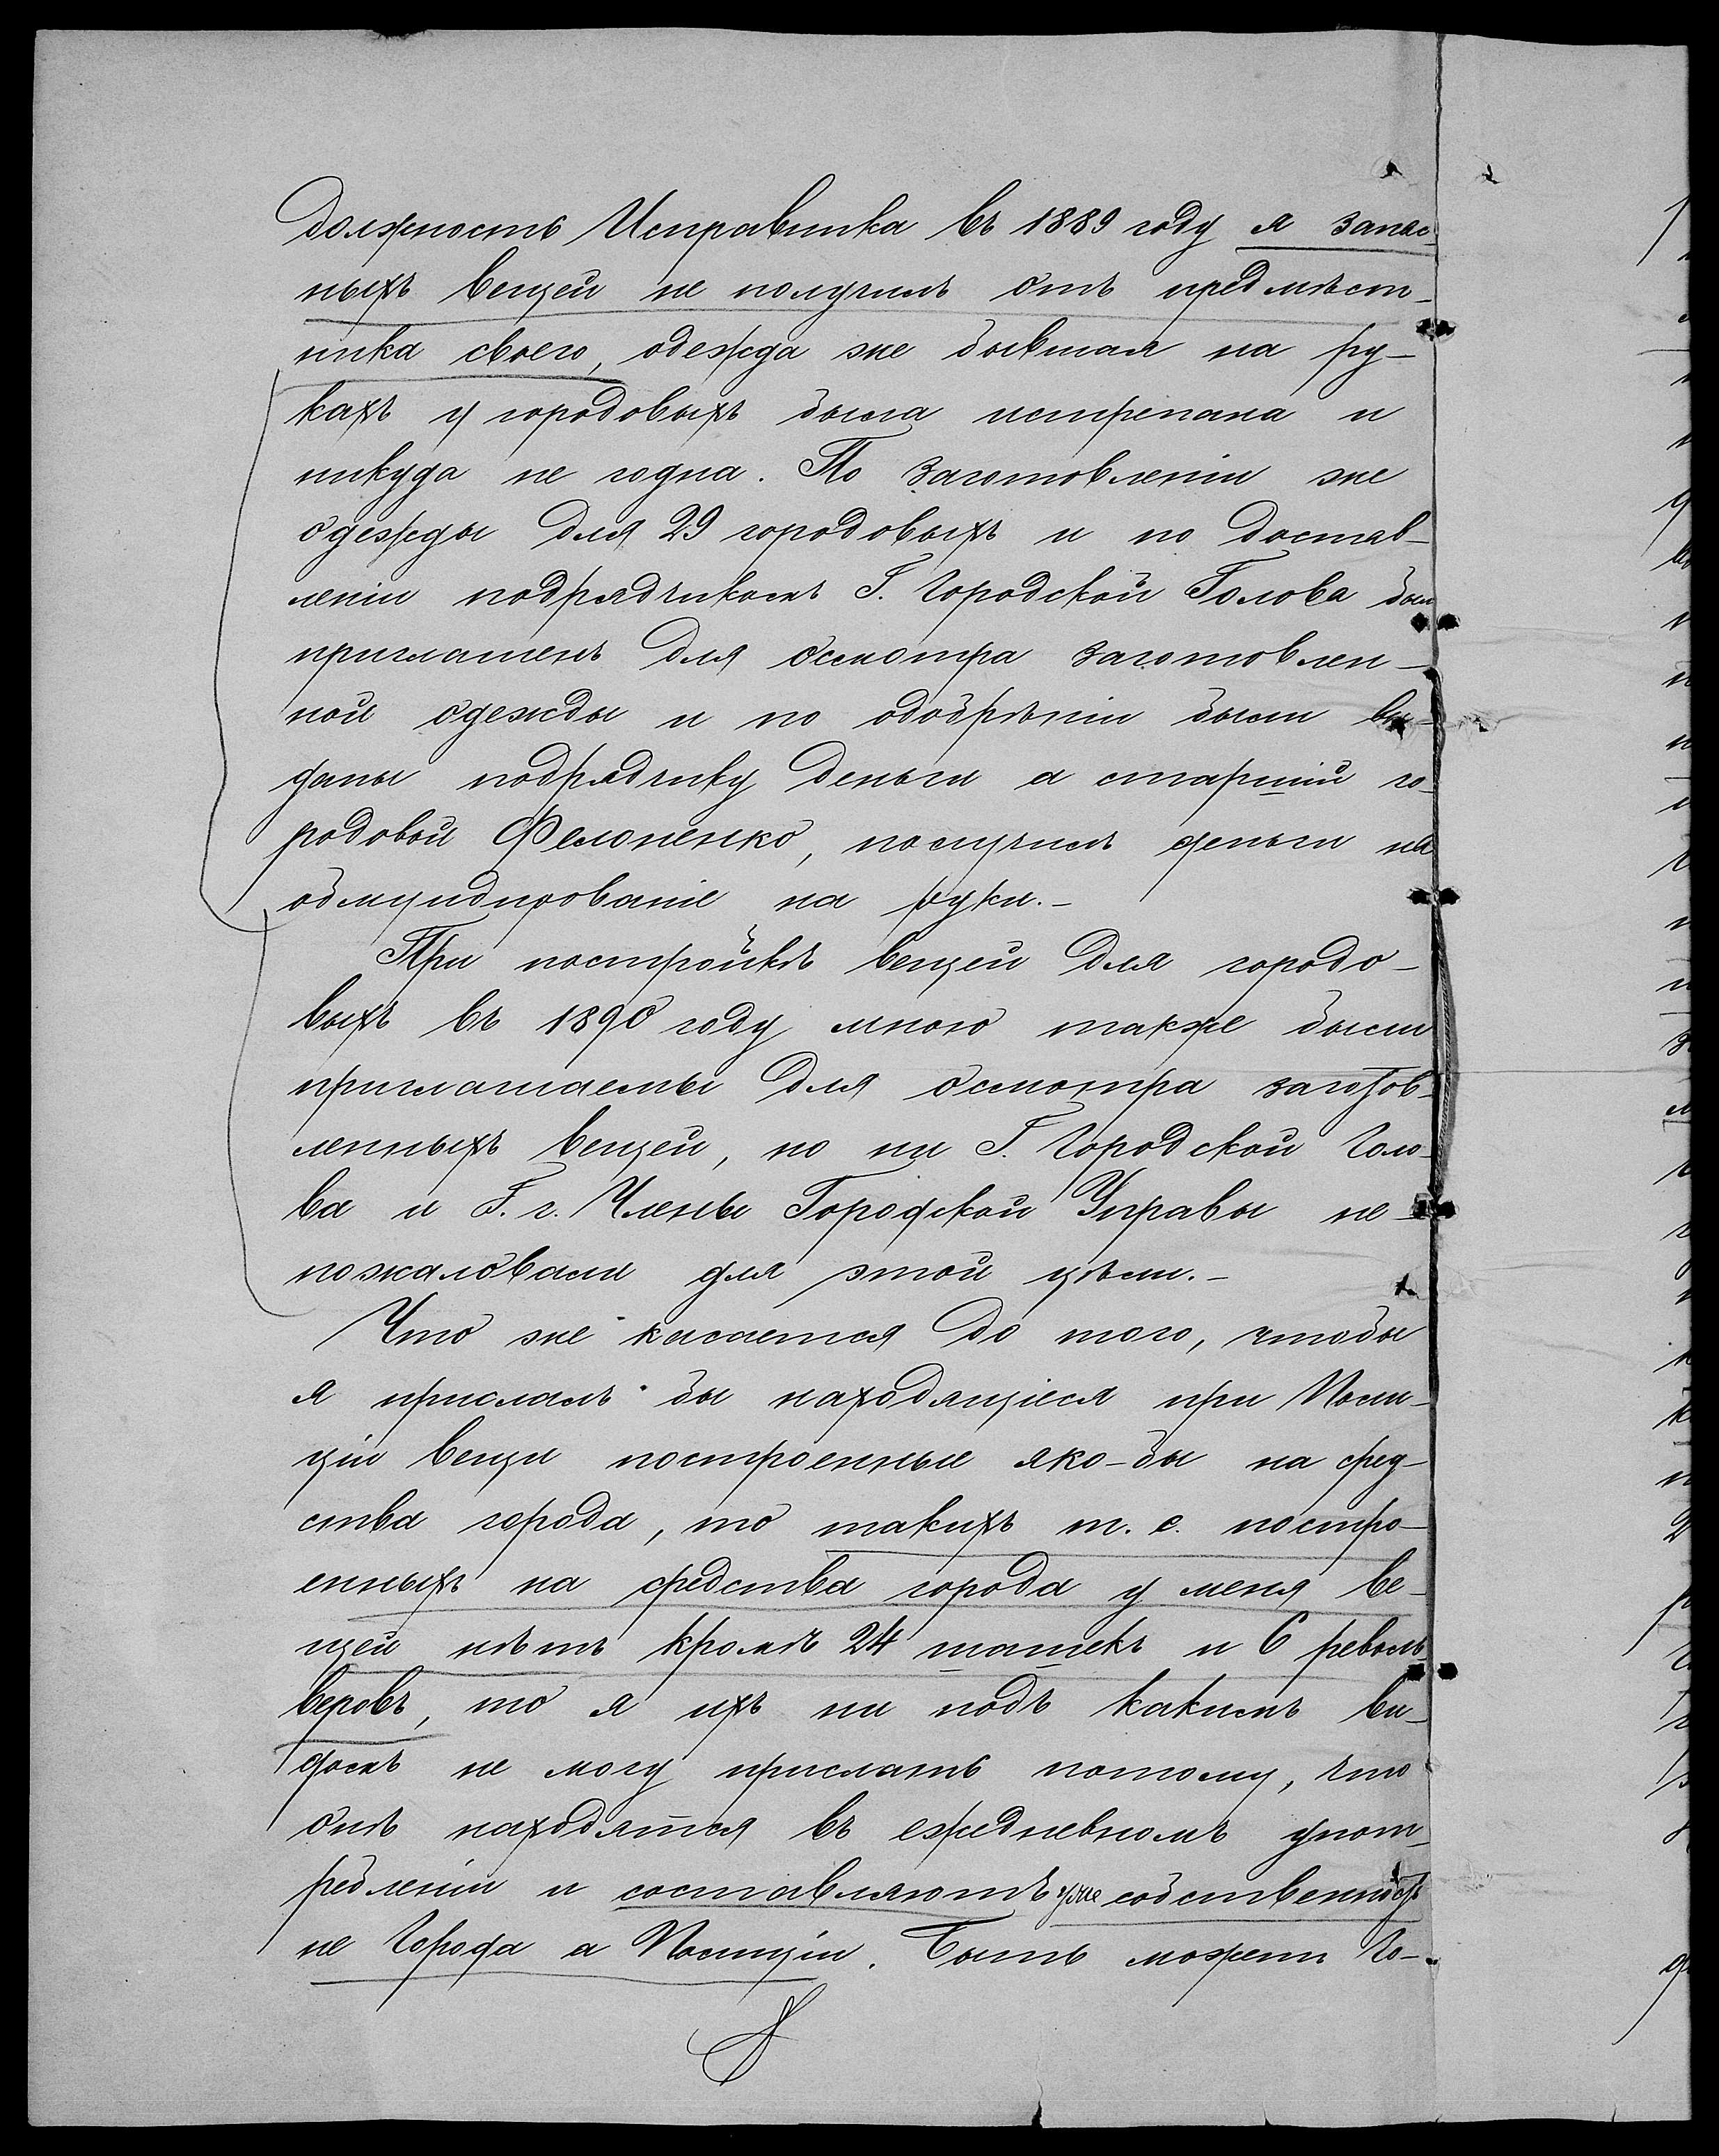 должность Исправника въ 1889 году я запас-
ныхъ вещей не получилъ отъ предмѣст-
ника своего, одежда же бывшая на ру-
кахъ у городовыхъ была истрепана и
никуда не годна. По заготовленіи же
одежды для 29 городовыхъ и по достав-
леніи подрядчикомъ Г. Городской Голова был
приглашенъ для осмотра заготовлен-
ной одежды и по одобрѣніи были вы-
даны подрядчику деньги а старшій го-
родовой Фелоненко, получилъ деньги на
обмундированіе на руки.-
При постройкѣ вещей для городо-
выхъ въ 1890 году мною также были
приглашаемы для осмотра заготов-
ленныхъ вещей, но ни Г. Городской Голо-
ва и Г.г. Члены Городской Управы не-
пожаловали для этой цѣли.-
Что же касается до того, чтобы
я прислалъ бы находящіеся при Поли-
ціи вещи построенные яко-бы на сред-
ства города, то такихъ т. е. постро-
енныхъ на средства города у меня ве-
щей нѣтъ кромѣ 24 шашекъ и 6 револь-
веровъ, то я ихъ ни подъ какимъ ви-
домъ не могу прислать потому, что
онѣ находятся въ ежедневномъ упот-
ребленіи и составляютъ уже собственность
не Города а Полиціи. Быть можетъ Го-